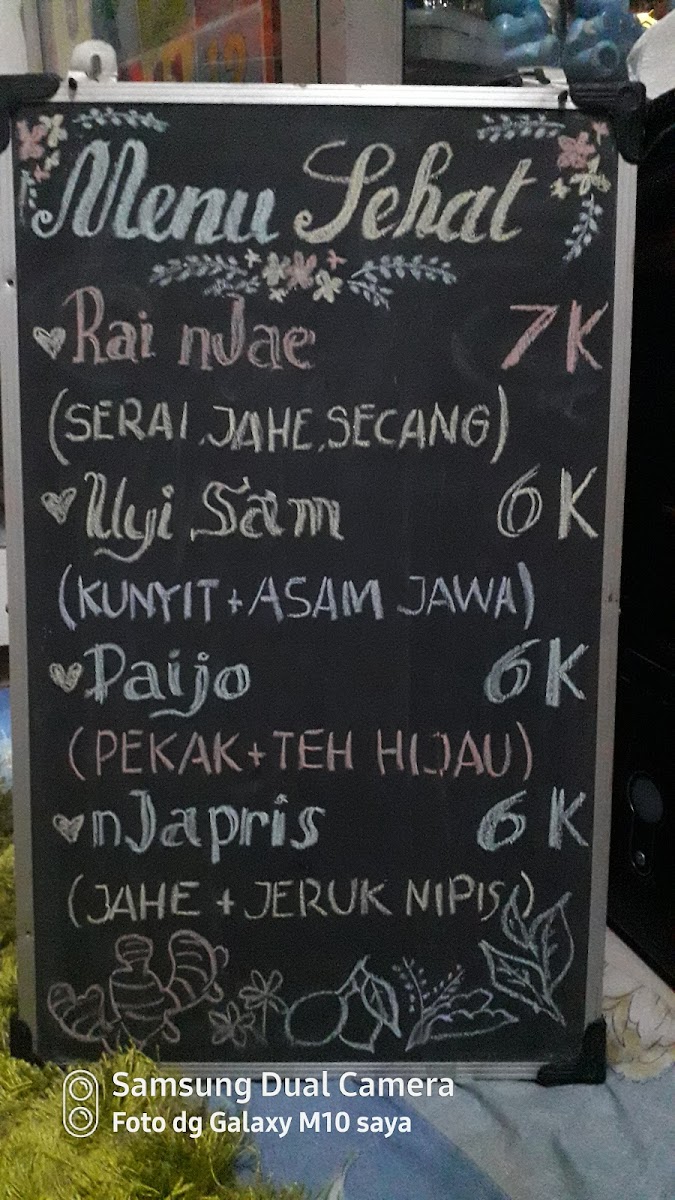 Menu Sehat
Rai nJae 7K
(SERAI, JAHE, SECANG)
Uyi Sam 6K
(KUNYIT + ASAM JAWA)
Paijo 6K
(PEKAK + TEH HIJAU)
nJapris 6K
(JAHE + JERUK NIPIS)
Samsung Dual Camera
Foto dg Galaxy M10 saya